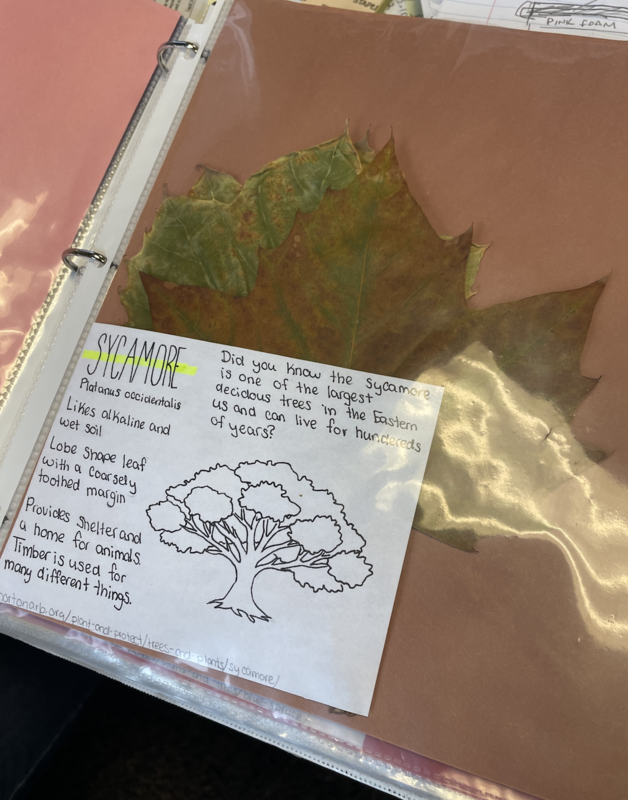 PINK FOAM
SYCAMORE
Platanus occidentalis
Likes alkaline and
wet soil
Lobe shape leaf
with a coarsely
toothed margin
Provides shelter and
a home for animals.
Timber is used for
many different things.
Did you know the sycamore
is one of the largest
decidous trees in the Eastern
us and can live for hundereds
of years?
mortonarb.org/plant-and-protect/trees-and-plants/sycamore/